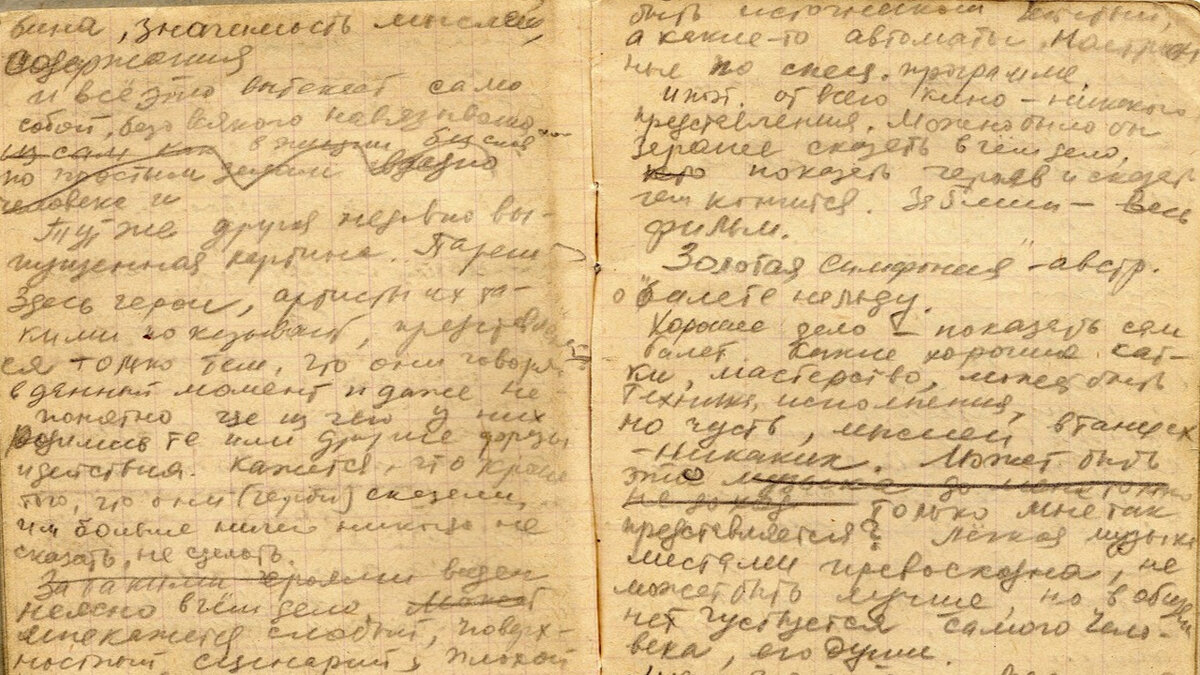 бина, значимость мыслей,
содержания
и всё это вытекает само
собой, безо всякого навязывания
из сам как в жизни бы слов
по простым делам
человеке и
Тут же другая недавно вы-
пущенная картина. Парень
Здесь герои, артисты их та-
кими показывают, представля
ся только тем, что они говорят
в данный момент и даже не-
понятно где из чего у них
родились те или другие фразы
и действия. Кажется, что кроме
того, что они (герои) сказали
им больше ничего никогда не
сказать, не сделать.
За такими героями виден
неясно в чём дело. Может
мне кажется слабый, поверх-
ностный сценарий, плохой
быть источником
а какие-то автоматы настроен
ные по спец. программе.
от всего кино - никакого
представления. Можно было он
заранее сказать в чём дело,
кто показать героев и сказать
чем кончится. За 5 мин - весь
фильм.
Золотая симфония - австр.
о балете на льду.
Хорошее дело - показать сам
балет. Какие хорошие кат-
ки, мастерство, может быть
Техника, исполнения,
но чуств, мыслей в танцах
- никаких. Может быть
это музыка до меня только
не доход Только мне так
представляется? Лёгкая музыка
местами превосходна, не
может быть лучше, но в общем
нет чуствуется самого чело-
века, его души.